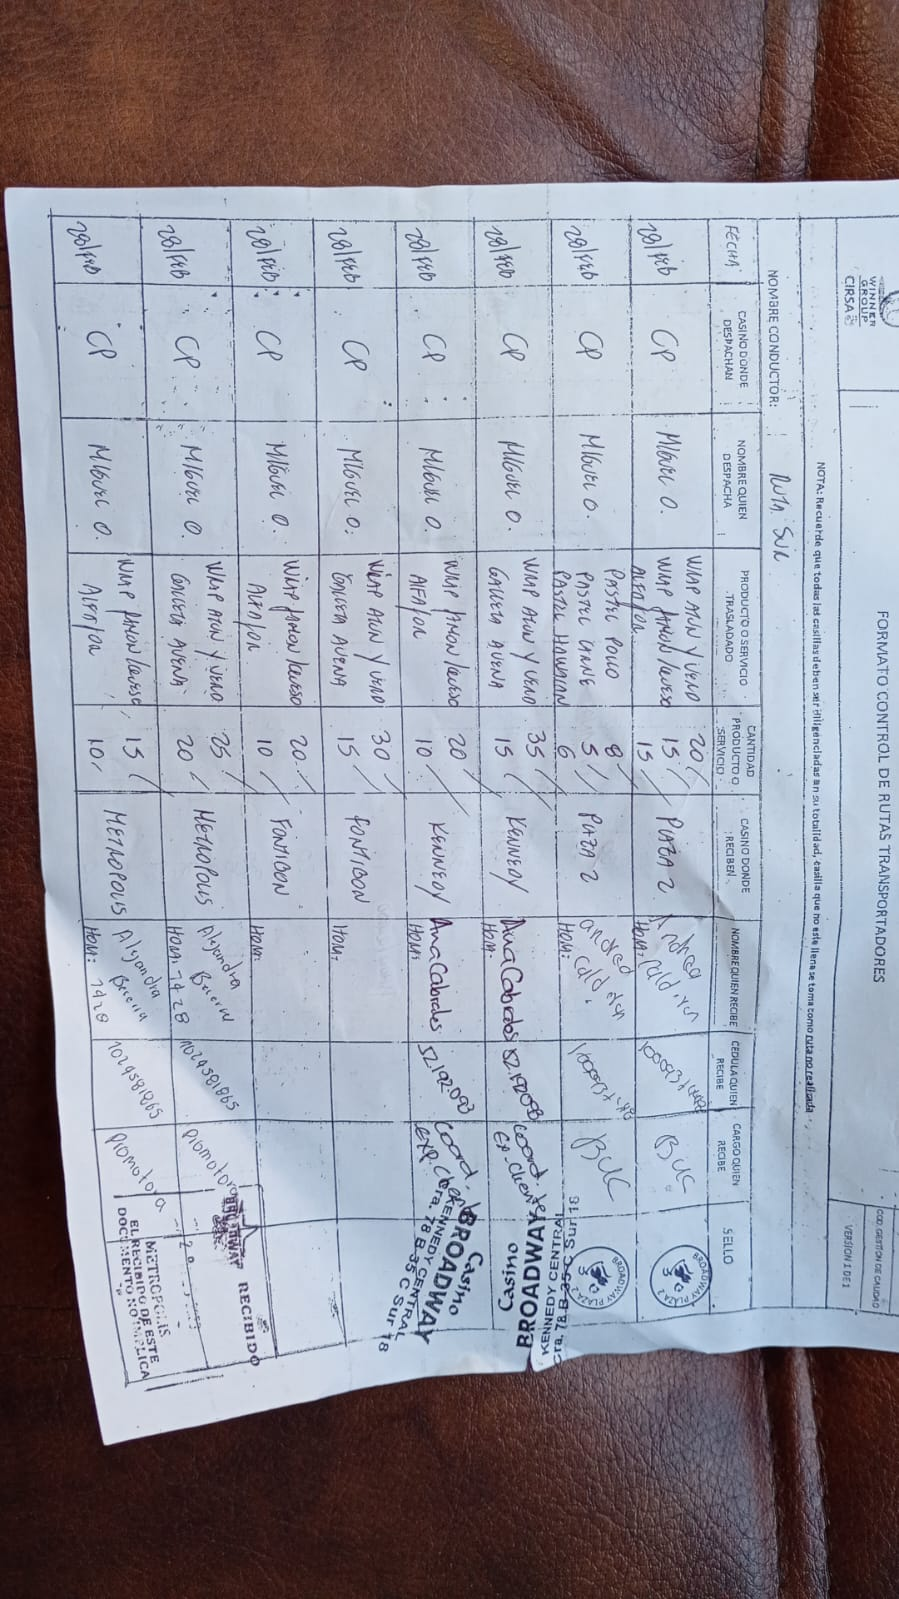 WINNER
GROUP
CIRSA
FORMATO CONTROL DE RUTAS TRANSPORTADORES
COD. GESTION DE CALIDAD
VERSION 1 DE 1
NOTA: Recuerde que todas las casillas deben ser diligenciadas en su totalidad, casilla que no este llena se toma como ruta no realizada
NOMBRE CONDUCTOR: RUTA SUR
FECHA
CASINO DONDE DESPACHAN
NOMBRE QUIEN DESPACHA
PRODUCTO O SERVICIO TRASLADADO
CANTIDAD PRODUCTO O SERVICIO
CASINO DONDE RECIBEN
NOMBRE QUIEN RECIBE
CEDULA QUIEN RECIBE
CARGO QUIEN RECIBE
SELLO
28/FEB CP MIGUEL O. PLAZA 2 Andrea
WRAP ATUN Y VERD 20
WRAP JAMON /QUESO 15
ALFAJOR 15
HORA:
BROADWAY PLAZA 2
28/FEB CP MIGUEL O. PLAZA 2 andrea
PASTEL POLLO 8
PASTEL CARNE 5
PASTEL HAWAIAN 6
HORA:
BROADWAY PLAZA 2
28/FEB CP MIGUEL O. KENNEDY Ana Cabrales Coord.
WRAP ATUN Y VERD 35
GALLETA AVENA 15
HORA:
Casino
BROADWAY
KENNEDY CENTRAL
Cra. 78 B 35 C Sur 18
28/FEB CP MIGUEL O. KENNEDY Ana Cabrales 52.192.093 Coord.
WRAP JAMON /QUESO 20
ALFAJOR 10
HORA:
Casino
BROADWAY
KENNEDY CENTRAL
Cra. 78 B 35 C Sur 18
28/FEB CP MIGUEL O. FONTIBON
WRAP ATUN Y VERD 30
GALLETA AVENA 15
HORA:
28/FEB CP MIGUEL O. FONTIBON
WRAP JAMON /QUESO 20
ALFAJOR 10
HORA:
28/FEB CP MIGUEL O. METROPOLIS Alejandra 1024581865 Promotora
WRAP ATUN Y VERD 25
GALLETA AVENA 20
HORA: 7:28
BROADWAY RECIBIDO
28/FEB CP MIGUEL O. METROPOLIS Alejandra 1024581865 Promotora
WRAP JAMON /QUESO 15
ALFAJOR 10
HORA: 7:28
METROPOLIS
EL RECIBIDO DE ESTE
DOCUMENTO NO IMPLICA